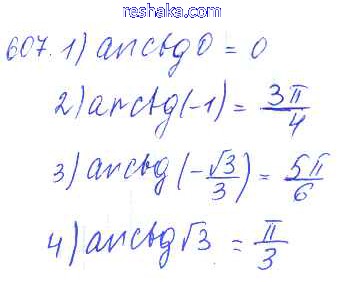 reshaka.com
607. 1) arcctg 0 = 0
2) arcctg (-1) = 3π/4
3) arcctg (-√3/3) = 5π/6
4) arcctg √3 = π/3